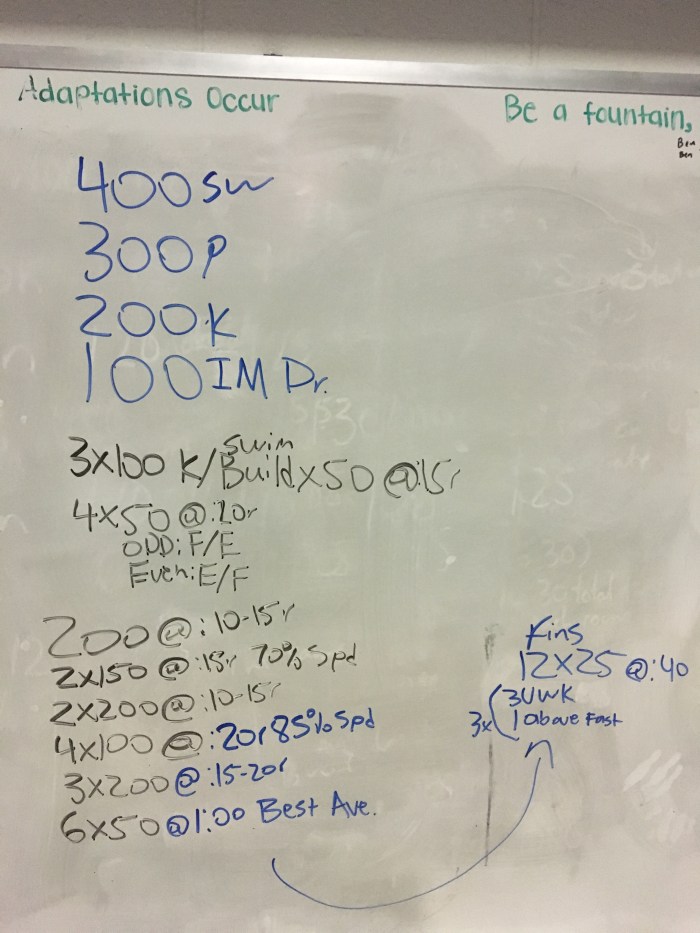 Adaptations Occur
Be a fountain,
400 SW
300 P
200 K
100 IM Dr.
swim
3x100 K/Build x50 @:15r
4x50 @:20r
ODD: F/E
Even: E/F
200 @:10-15r
2x150 @:15r 70% Spd
2x200 @:10-15r
4x100 @:20r 85% Spd
3x200 @:15-20r
6x50 @1:00 Best Ave.
Fins
12x25 @:40
3 UWK
3x 1 above Fast